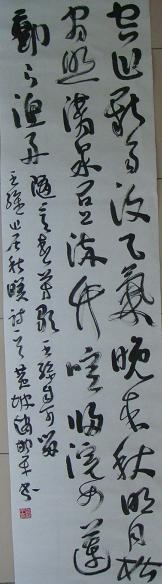 空山新雨後天氣晚来秋明月松
間照清泉石上流竹喧歸浣女蓮
動下漁舟隨意春芳歇王孫自可留
王維山居秋暝詩一首黄坡